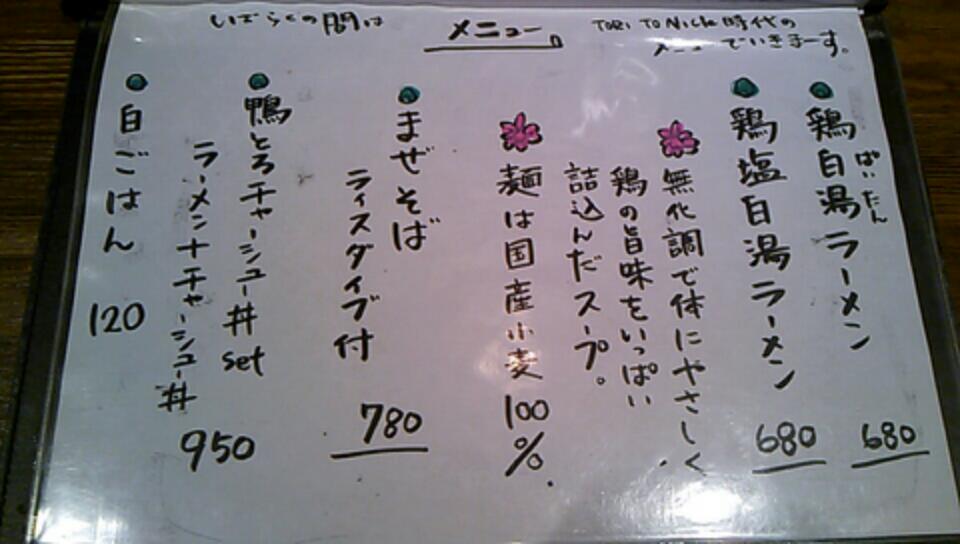 しばらくの間は
メニュー
TORI TO Niche時代の
メニューでいきまーす。
鶏白湯ラーメン
ぱいたん
680
鶏塩白湯ラーメン
680
無化調で体にやさしく、
鶏の旨味をいっぱい
詰込んだスープ。
麺は国産小麦100%.
まぜそば
ライスダイブ付
780
鴨とろチャーシュー丼set
ラーメン+チャーシュー丼
950
白ごはん 120